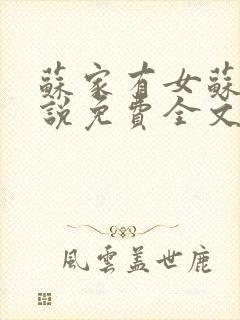 蘇家有女蘇
說免費全文
風雲蓋世鹿